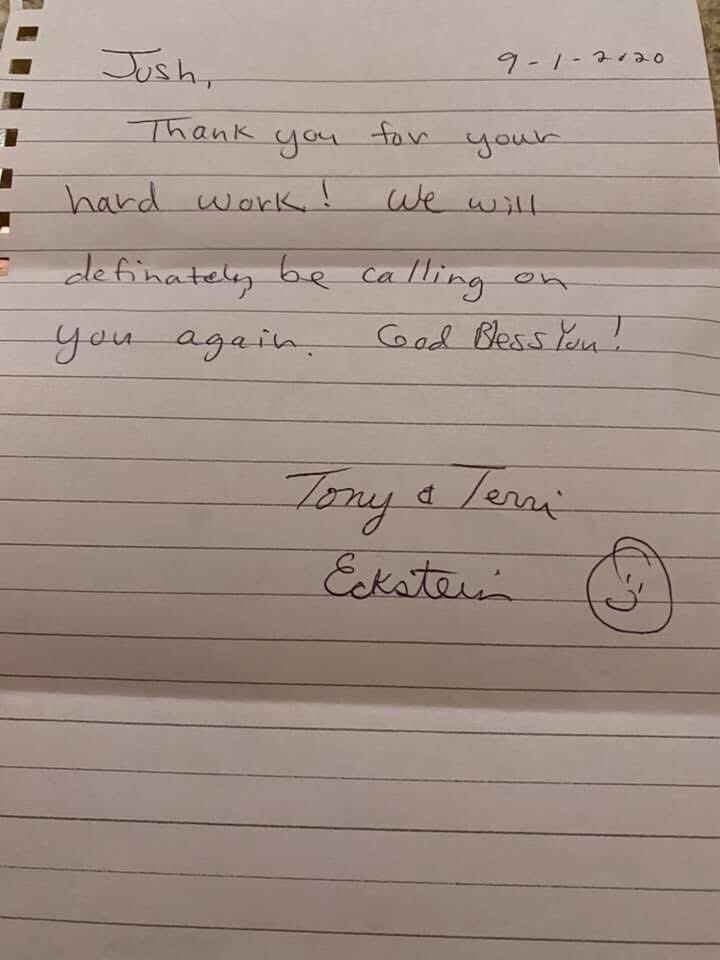 Josh, 9-1-2020
Thank you for your
hard work! We will
definately be calling on
you again. God Bless You!
Tony & Terri
Eckstein